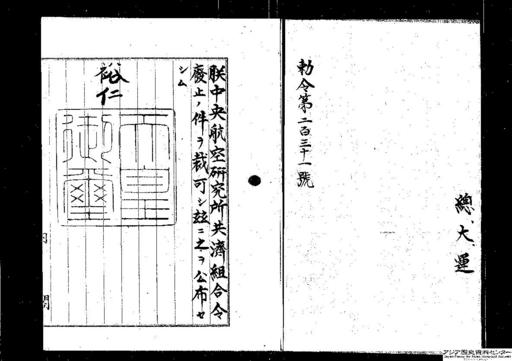 總、大、運
勅令第二百三十一號
朕中央航空研究所共濟組合令
廢止ノ件ヲ裁可シ玆ニ之ヲ公布セ
シム
裕仁
天皇
御璽
アジア歴史資料センター
Japan Center for Asian Historical Records